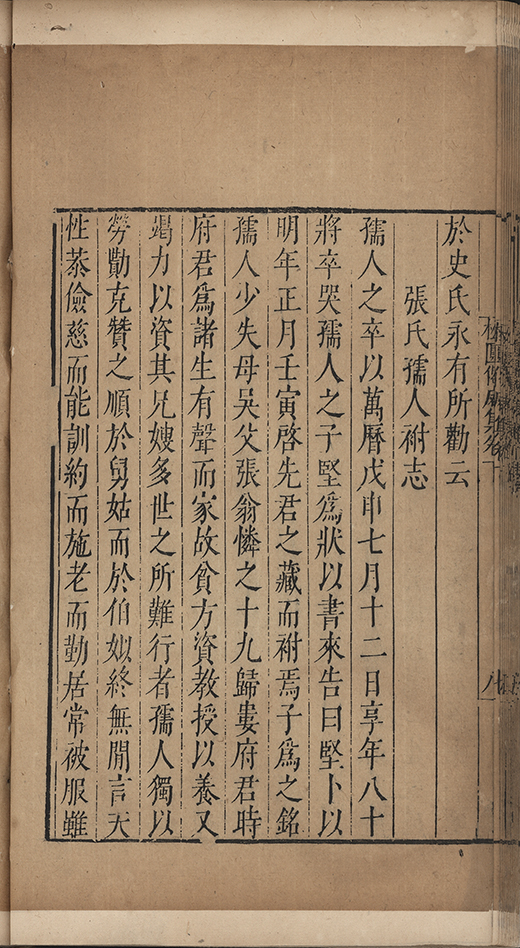 於史氏永有所勸云
張氏孺人祔志
孺人之卒以萬曆戊申七月十二日享年八十
將卒哭孺人之子堅爲狀以書來告曰堅卜以
明年正月壬寅啓先君之藏而祔焉子爲之銘
孺人少失母吳父張翁憐之十九歸婁府君時
府君爲諸生有聲而家故貧方資教授以養又
竭力以資其兄嫂多世之所難行者孺人獨以
勞勩克贊之順於舅姑而於伯姒終無閒言天
性恭儉慈而能訓約而施老而勤居常被服雖